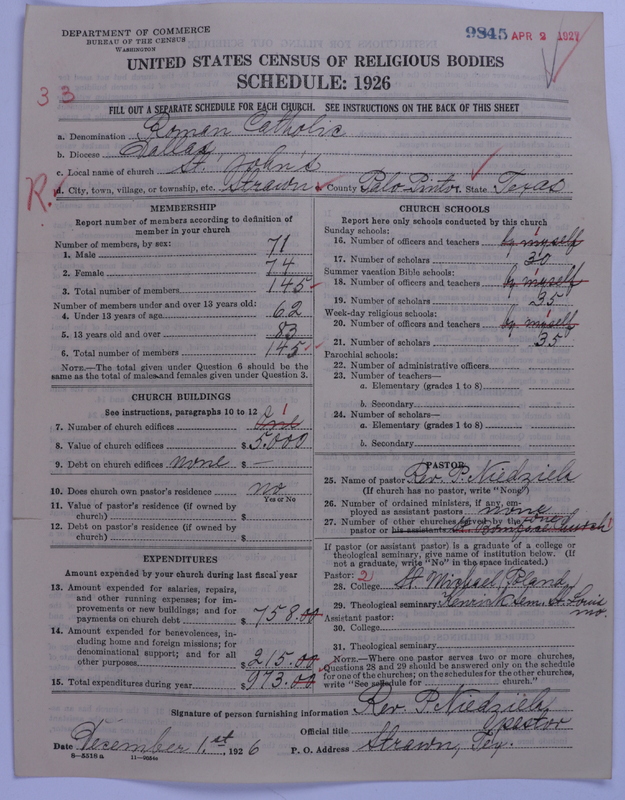 DEPARTMENT OF COMMERCE
BUREAU OF THE CENSUS
WASHINGTON
9845 APR 2 1927
UNITED STATES CENSUS OF RELIGIOUS BODIES
SCHEDULE: 1926
33
FILL OUT A SEPARATE SCHEDULE FOR EACH CHURCH. SEE INSTRUCTIONS ON THE BACK OF THIS SHEET
a. Denomination Roman Catholic
b. Diocese Dallas
c. Local name of church St. John's
R. d. City, town, village, or township, etc. Strawn County Palo Pinto State Texas
MEMBERSHIP
Report number of members according to definition of
member in your church
Number of members, by sex:
1. Male 71
2. Female 74
3. Total number of members 145
Number of members under and over 13 years old:
4. Under 13 years of age 62
5. 13 years old and over 83
6. Total number of members 145
NOTE.—The total given under Question 6 should be the
same as the total of males and females given under Question 3.
CHURCH BUILDINGS
See instructions, paragraphs 10 to 12
7. Number of church edifices One 1
8. Value of church edifices $ 5.000
9. Debt on church edifices none $ —
10. Does church own pastor's residence no
Yes or No
11. Value of pastor's residence (if owned by
church) $
12. Debt on pastor's residence (if owned by
church) $
EXPENDITURES
Amount expended by your church during last fiscal year
13. Amount expended for salaries, repairs,
and other running expenses; for im-
provements or new buildings; and for
payments on church debt $ 758.00
14. Amount expended for benevolences, in-
cluding home and foreign missions; for
denominational support; and for all
other purposes $ 215.00
15. Total expenditures during year $ 973.00
CHURCH SCHOOLS
Report here only schools conducted by this church
Sunday schools:
16. Number of officers and teachers by myself 1
17. Number of scholars 30
Summer vacation Bible schools:
18. Number of officers and teachers by myself 1
19. Number of scholars 35
Week-day religious schools:
20. Number of officers and teachers by myself 1
21. Number of scholars 35
Parochial schools:
22. Number of administrative officers
23. Number of teachers—
a. Elementary (grades 1 to 8)
b. Secondary
24. Number of scholars—
a. Elementary (grades 1 to 8)
b. Secondary
PASTOR
25. Name of pastor Rev. P. Niedziela
(If church has no pastor, write "None")
26. Number of ordained ministers, if any, em-
ployed as assistant pastors none
27. Number of other churches served by the
pastor or his assistants
If pastor (or assistant pastor) is a graduate of a college or
theological seminary, give name of institution below. (If
not a graduate, write "No" in the space indicated.)
Pastor: 2
28. College St. Michael
29. Theological seminary Kenrick Sem. St. Louis
Mo.
Assistant pastor:
30. College
31. Theological seminary
NOTE.—Where one pastor serves two or more churches,
Questions 28 and 29 should be answered only on the schedule
for one of the churches; on the schedules for the other churches,
write "See schedule for church."
Signature of person furnishing information Rev. P. Niedziela
Official title pastor
Date December 1.st 1926 P. O. Address Strawn, Tex.
8—5518a 11—9084a